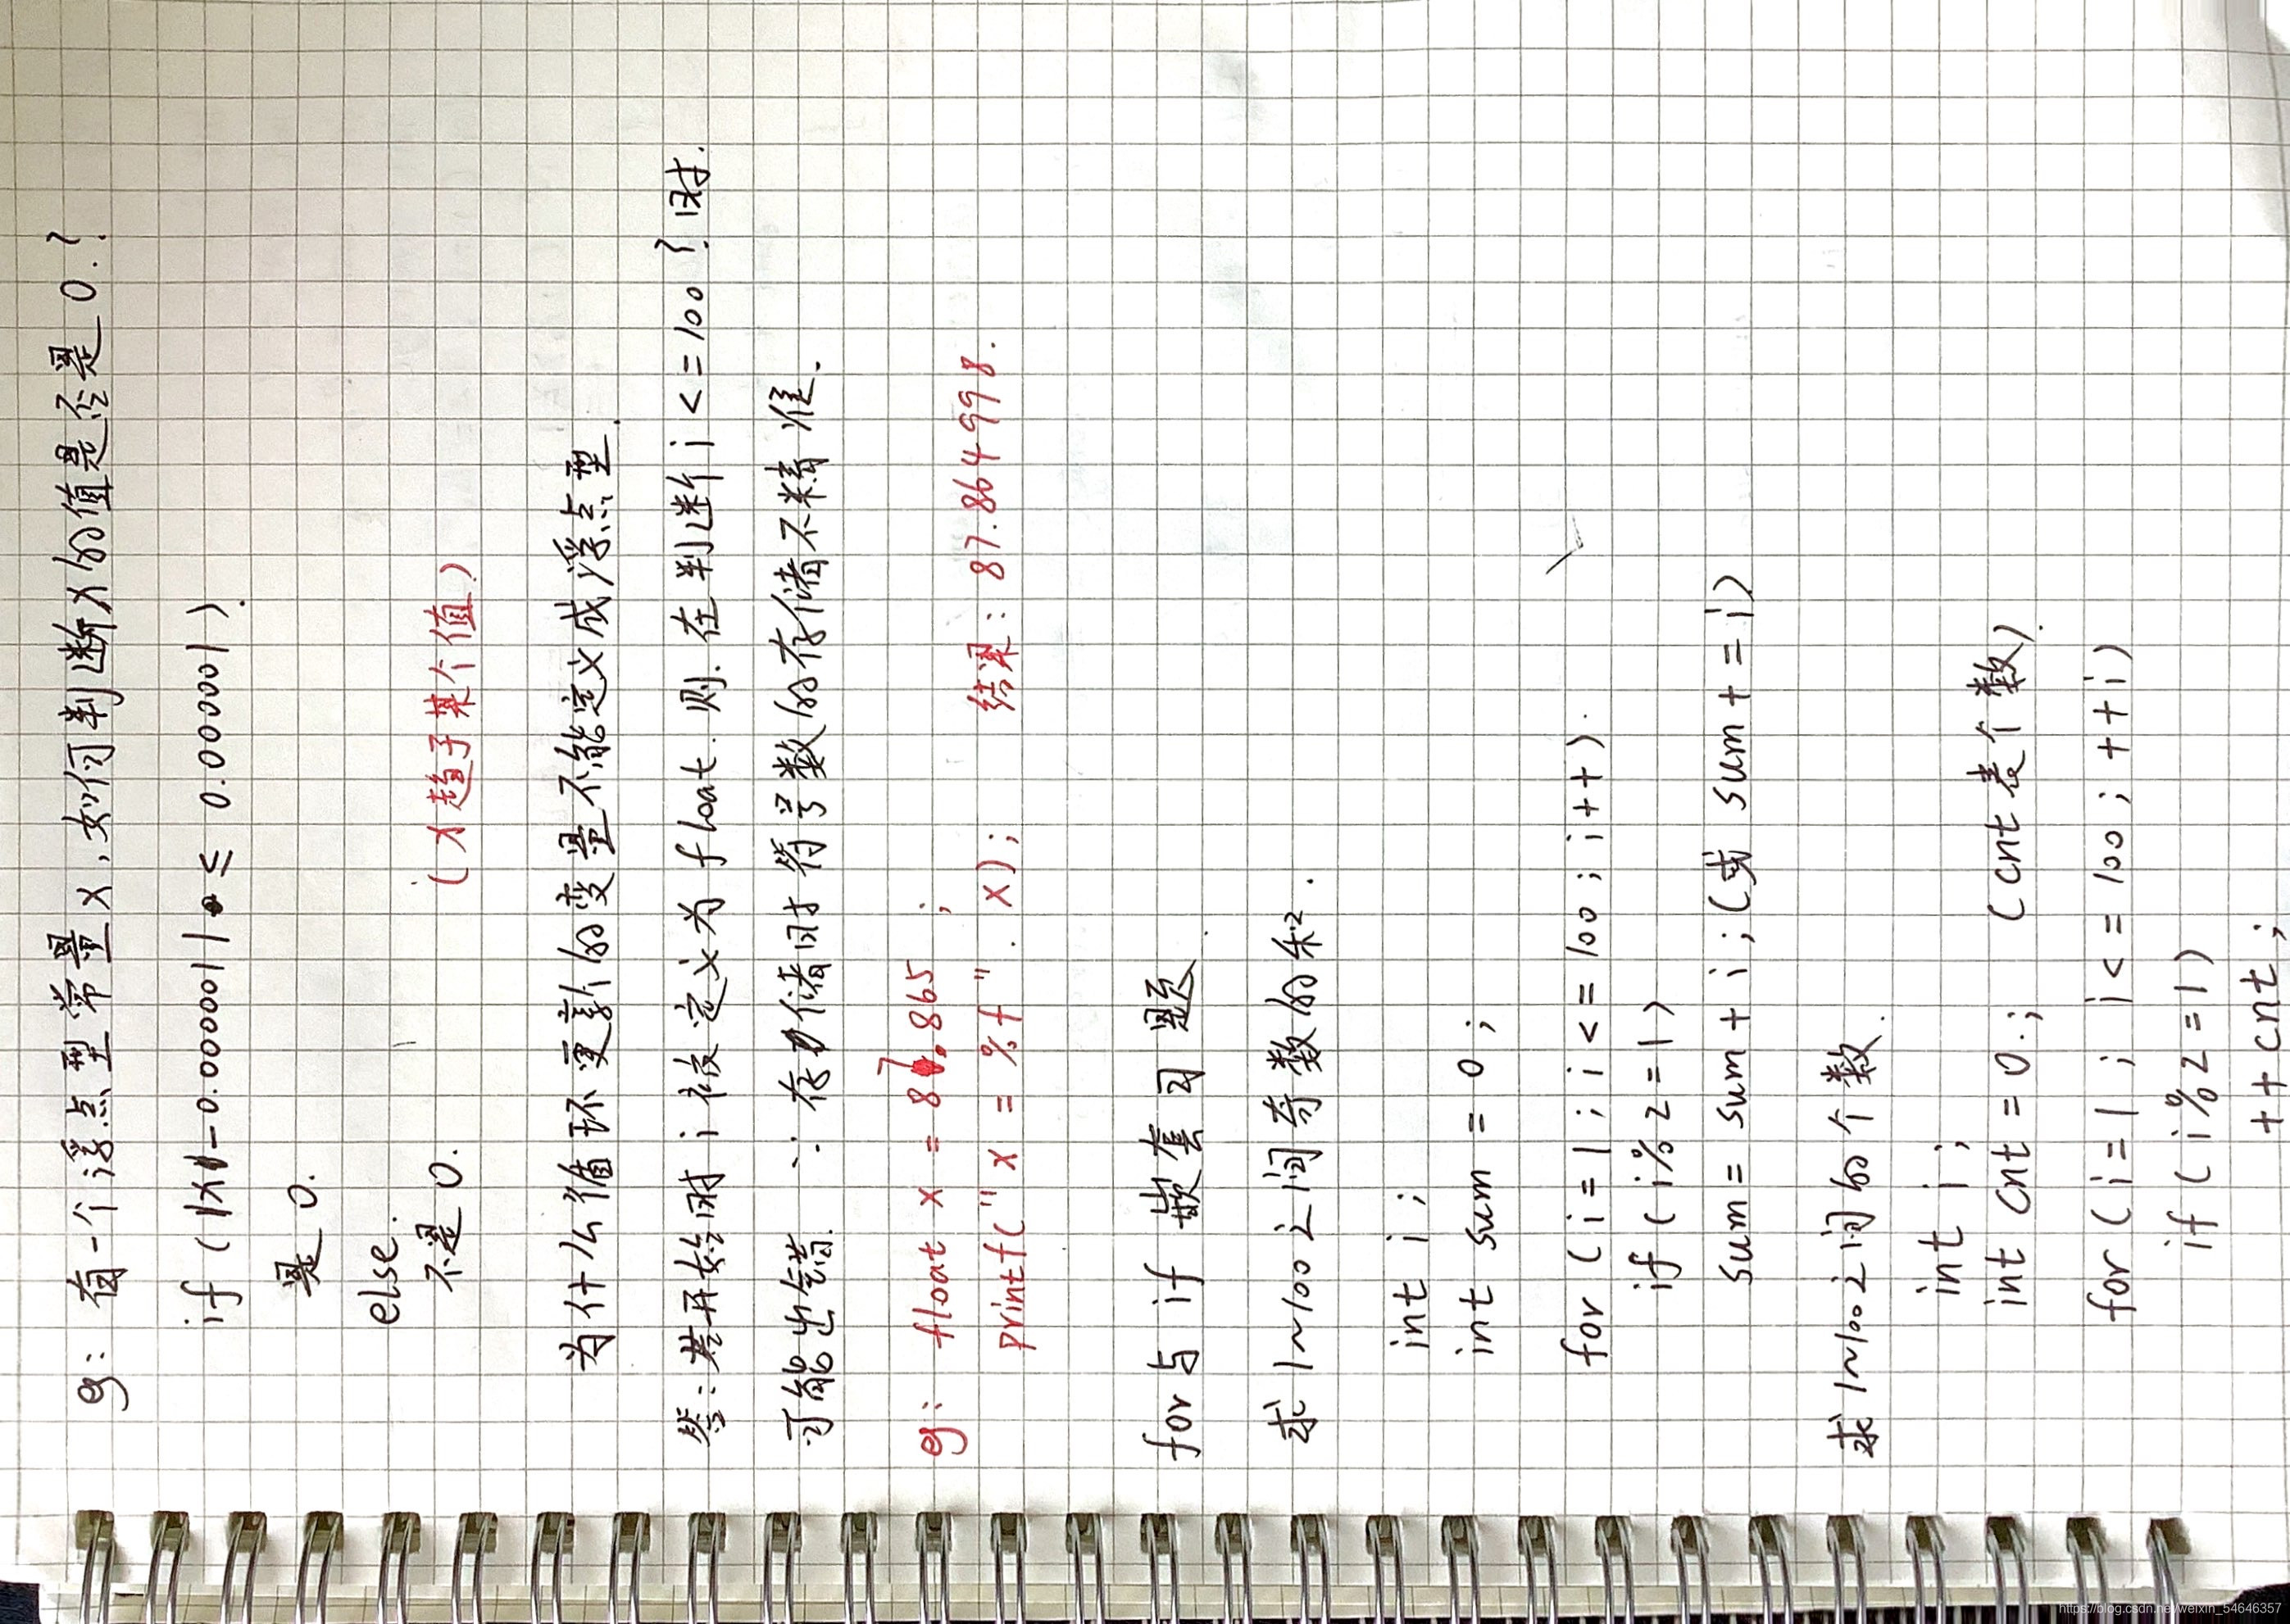 eg: 有一个浮点型常量x,如何判断x的值是否是0.?
if (|x-0.000001| ≤ 0.000001).
是0.
else.
不是0.
(x趋于某个值)
为什么循环更新的变量不能定义成浮点型.
答:若开始时i被定义为float.则.在判断i<=100?时.
可能出错. ∵存储时符号数的存储不精准.
eg: float x = 87.865 ;
printf("x = %f". x); 结果:87.864998.
for与if 嵌套习题.
求1~100之间奇数的和.
int i;
int sum = 0;
for (i=1; i<=100; i++).
if (i%2=1)
sum = sum + i; (或 sum + = i)
求1~100之间的个数.
int i;
int cnt = 0.; (cnt表个数).
for (i=1; i<=100; ++i)
if (i%2=1)
++cnt;
https://blog.csdn.net/weixin_54646357